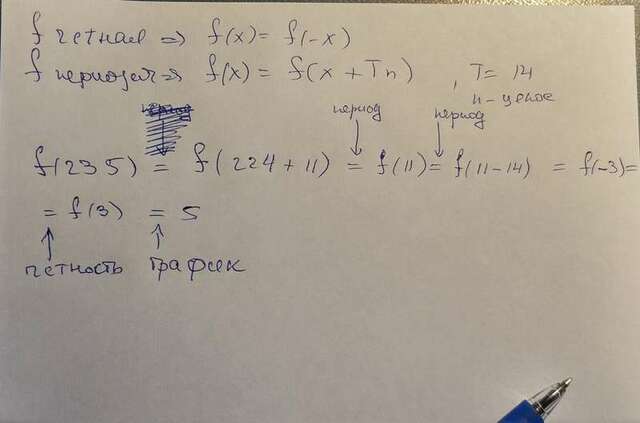 f четная => f(x) = f(-x)
f периодич => f(x) = f(x + Tn) , T = 14
n - целое
период период
f(235) = f(224 + 11) = f(11) = f(11-14) = f(-3) =
= f(3) = 5
четность график